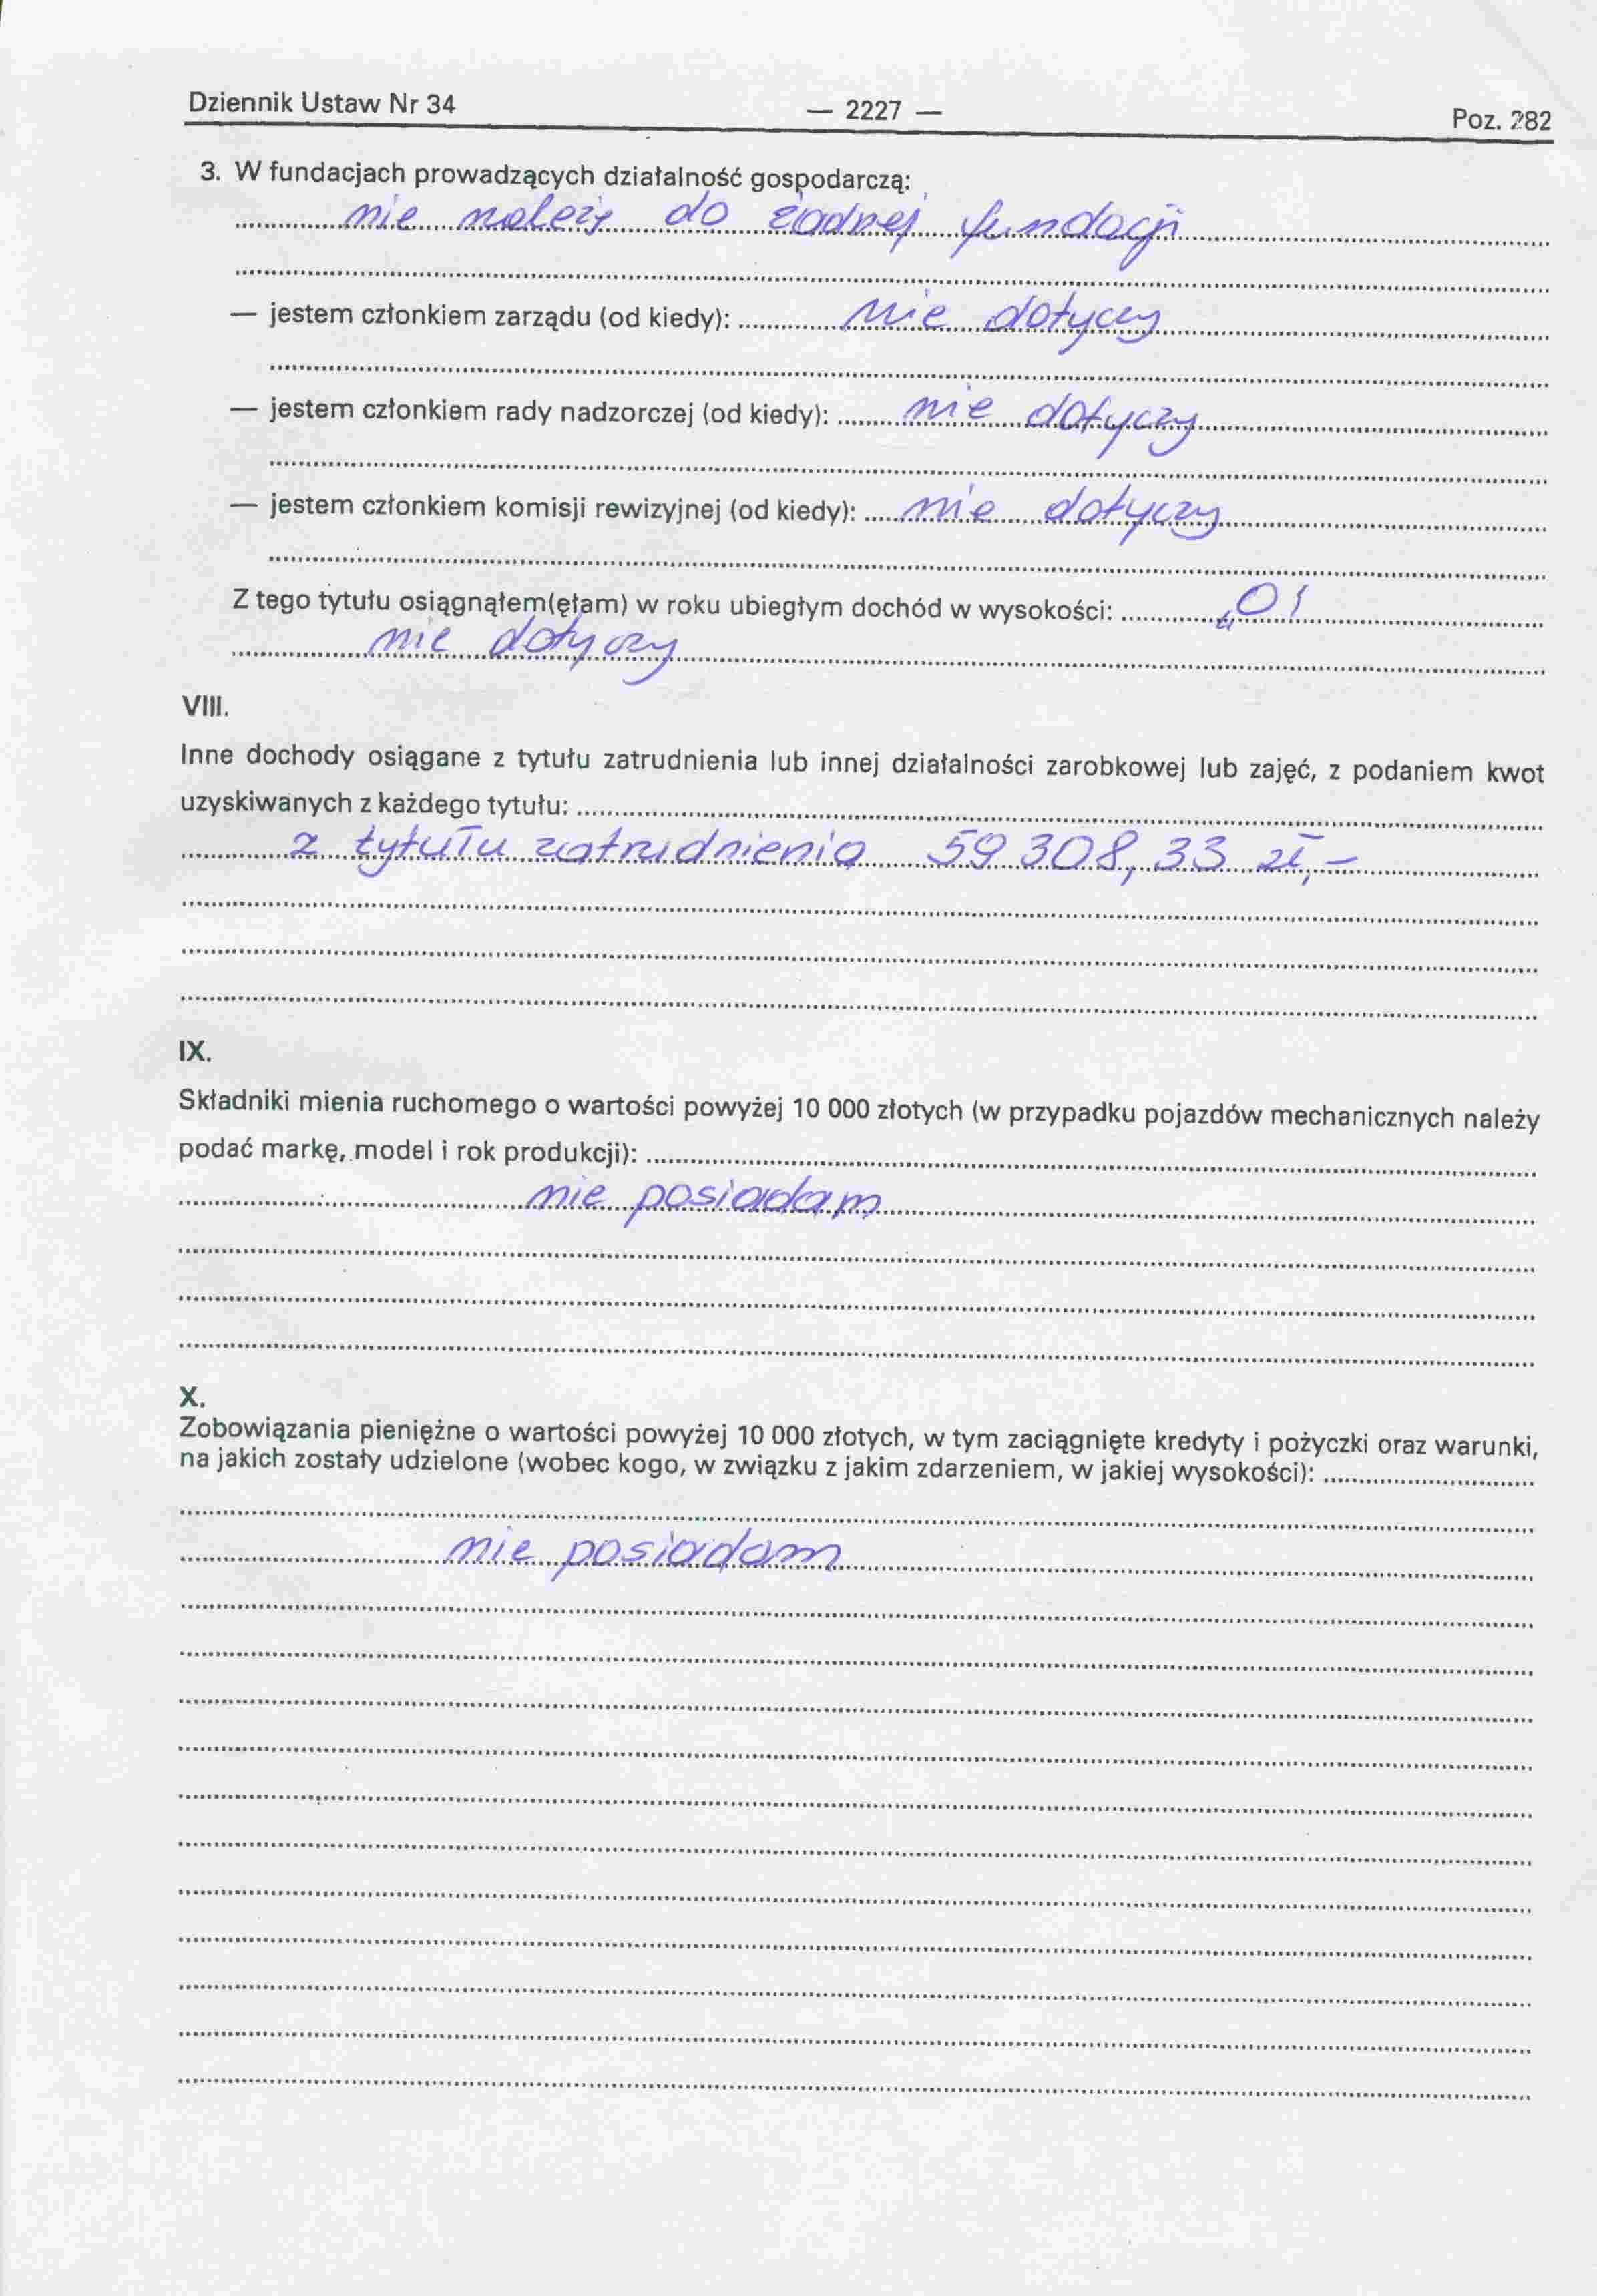 Dziennik Ustaw Nr 34 — 2227 — Poz. 282
3. W fundacjach prowadzących działalność gospodarczą:
nie należy do żadnej fundacji
— jestem członkiem zarządu (od kiedy): nie dotyczy
— jestem członkiem rady nadzorczej (od kiedy): nie dotyczy
— jestem członkiem komisji rewizyjnej (od kiedy): nie dotyczy
Z tego tytułu osiągnąłem(ęłam) w roku ubiegłym dochód w wysokości: „0"
nie dotyczy
VIII.
Inne dochody osiągane z tytułu zatrudnienia lub innej działalności zarobkowej lub zajęć, z podaniem kwot
uzyskiwanych z każdego tytułu:
z tytułu zatrudnienia 59 308,33 zł,–
IX.
Składniki mienia ruchomego o wartości powyżej 10 000 złotych (w przypadku pojazdów mechanicznych należy
podać markę, model i rok produkcji):
nie posiadam
X.
Zobowiązania pieniężne o wartości powyżej 10 000 złotych, w tym zaciągnięte kredyty i pożyczki oraz warunki,
na jakich zostały udzielone (wobec kogo, w związku z jakim zdarzeniem, w jakiej wysokości):
nie posiadam